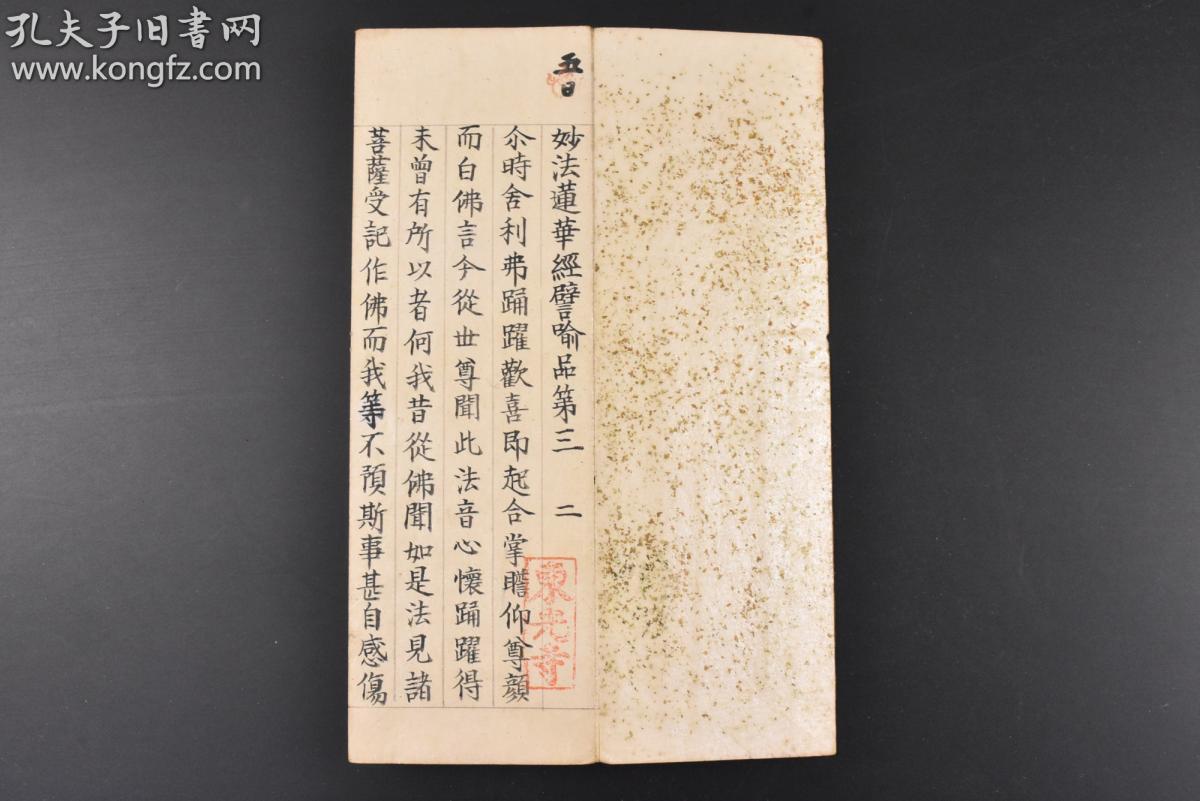 孔夫子旧书网
www.kongfz.com
五日
妙法蓮華經譬喻品第三 二
尒時舍利弗踊躍歡喜即起合掌瞻仰尊顏
而白佛言今從世尊聞此法音心懷踊躍得
未曾有所以者何我昔從佛聞如是法見諸
菩薩受記作佛而我等不預斯事甚自感傷
東光寺